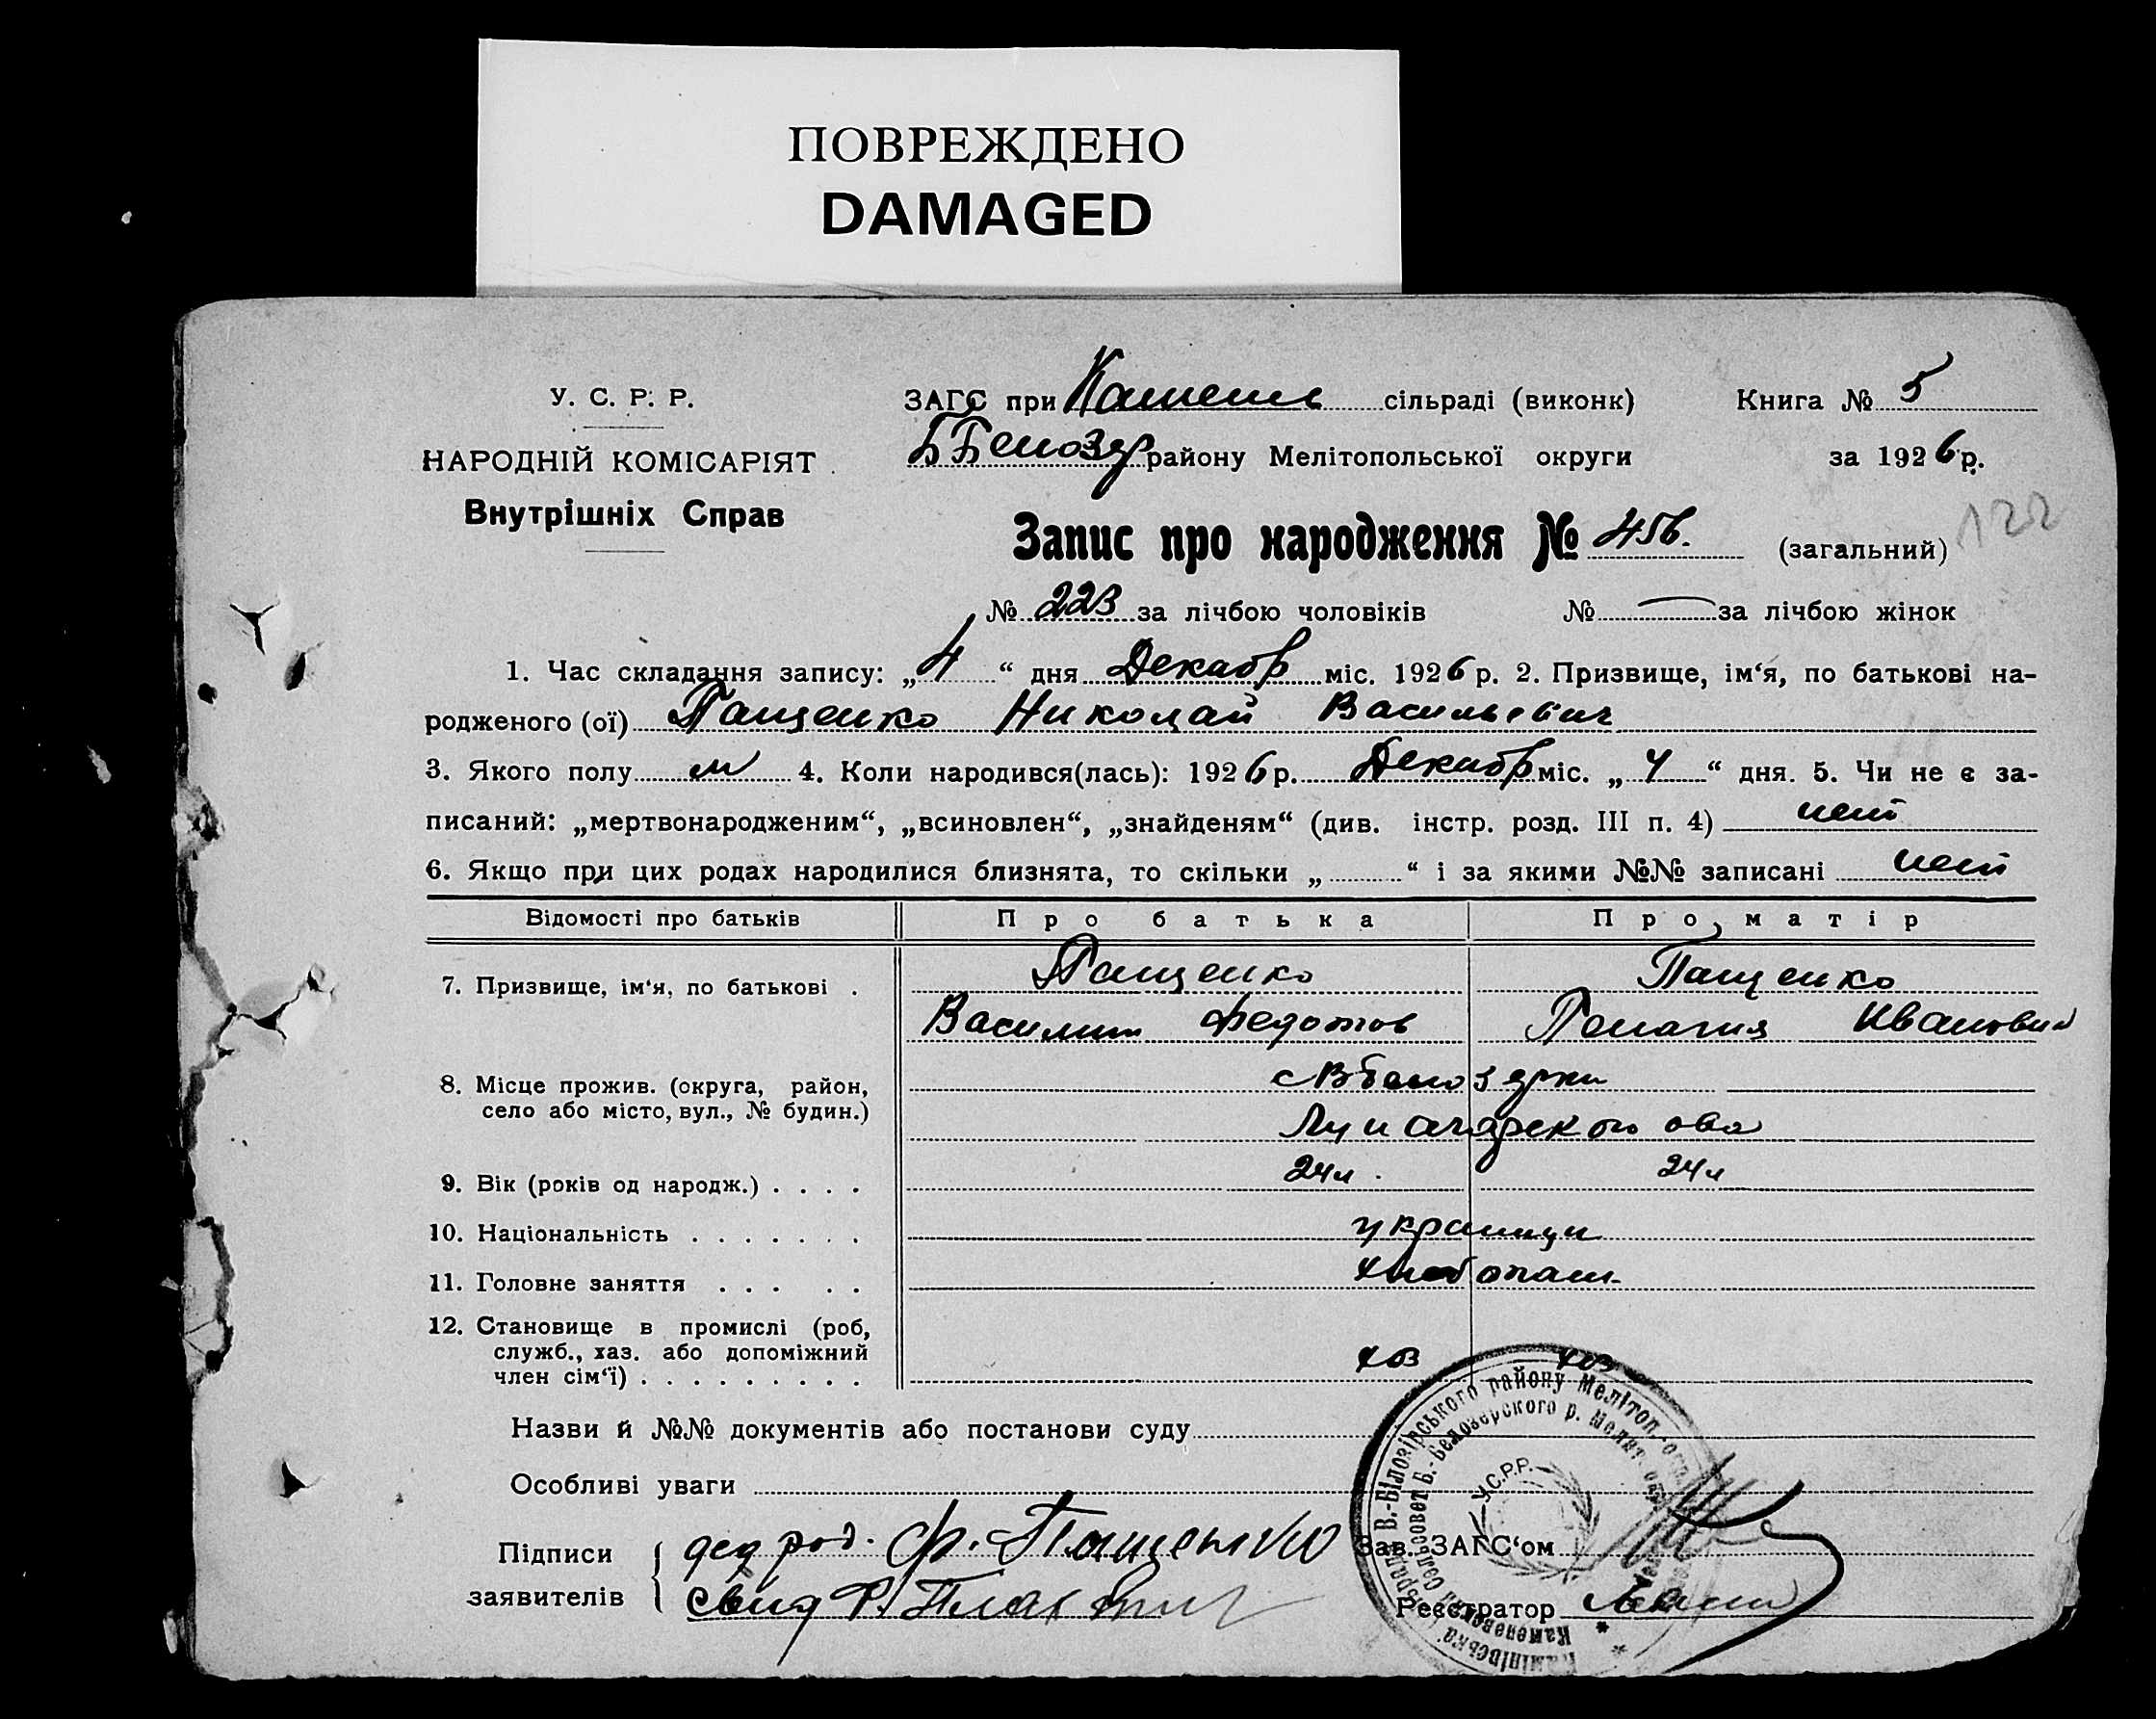 ПОВРЕЖДЕНО
DAMAGED
У. С. Р. Р.
НАРОДНІЙ КОМІСАРІЯТ
Внутрішніх Справ
ЗАГС при Каменск сільраді (виконк) Книга № 5
Б Белозер району Мелітопольської округи за 1926 р.
122
Запис про народження № 456. (загальний)
№ 223 за лічбою чоловіків № — за лічбою жінок
1. Час складання запису: „4“ дня Декабр міс. 1926 р. 2. Призвище, ім‘я, по батькові на-
родженого (ої) Пащенко Николай Васильевич
3. Якого полу м 4. Коли народився(лась): 1926 р. Декабр міс. „4“ дня. 5. Чи не є за-
писаний: „мертвонародженим“, „всиновлен“, „знайденям“ (див. інстр. розд. III п. 4) нет
6. Якщо при цих родах народилися близнята, то скільки „ “ і за якими №№ записані нет
Відомості про батьків Про батька Про матір
7. Призвище, ім‘я, по батькові . Пащенко Пащенко
Василий Федотов Пелагия Ивановна
8. Місце прожив. (округа, район, с Вбелозерки
село або місто, вул., № будин.)
Луначарского
9. Вік (років од народж.) . . . . 24 л. 24 л
10. Національність . . . . . . . украинци
11. Головне заняття . . . . . хлебопаш.
12. Становище в промислі (роб,
служб., хаз. або допоміжний
член сім‘ї) . . . . . . . . . хоз хоз
Назви й №№ документів або постанови суду
Особливі уваги
Підписи дед род. Ф. Пащенко Зав. ЗАГС‘ом
заявителів свид Реєстратор
В.-Білозірського району Мелітоп.
Сельсовет Б.-Белозерского р. Мелит. окр.
У.С.Р.Р.